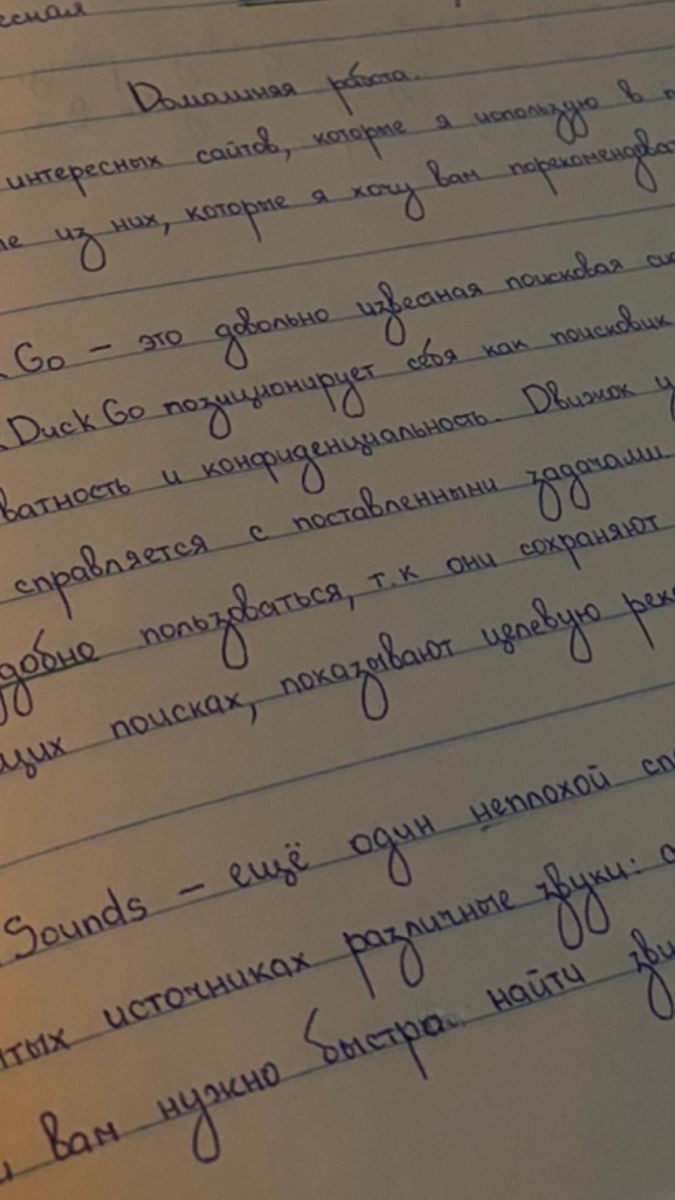 есная
Домашняя работа.
интересных сайтов, которые я использую в п
ие из них, которые я хочу вам порекомендоват
Go – это довольно известная поисковая сис
Duck Go позиционирует себя как поисковик
ватность и конфиденциальность. Движок у
справляется с поставленныни задачами.
добно пользоваться, т.к они сохраняют
щих поисках, показывают целевую рек
Sounds – ещё один неплохой сп
тых источниках различные звуки: а
и вам нужно быстро найти зву